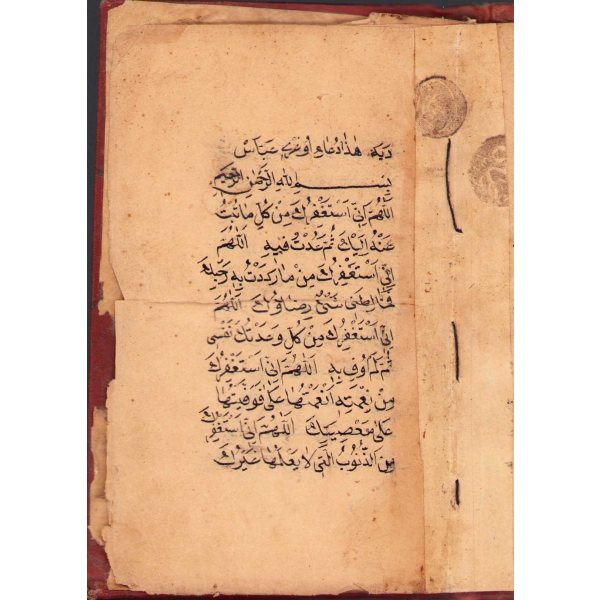 دیه هذا دعاء او نری عباس
بسم الله الرحمن الرحیم
اللهم انی استغفرك من كل ما تبت
عنه الیك ثم عدت فیه اللهم
انی استغفرك من ما اردت به وجهك
فخالطنی رضاؤك اللهم
انی استغفرك من كل وعدتك نفسی
ثم لم اوف به اللهم انی استغفرك
من نعمته انعمتها علی فوفیتها
علی معصیتك اللهم انی استغفرك
من الذنوب التی لا یعلمها غیرك